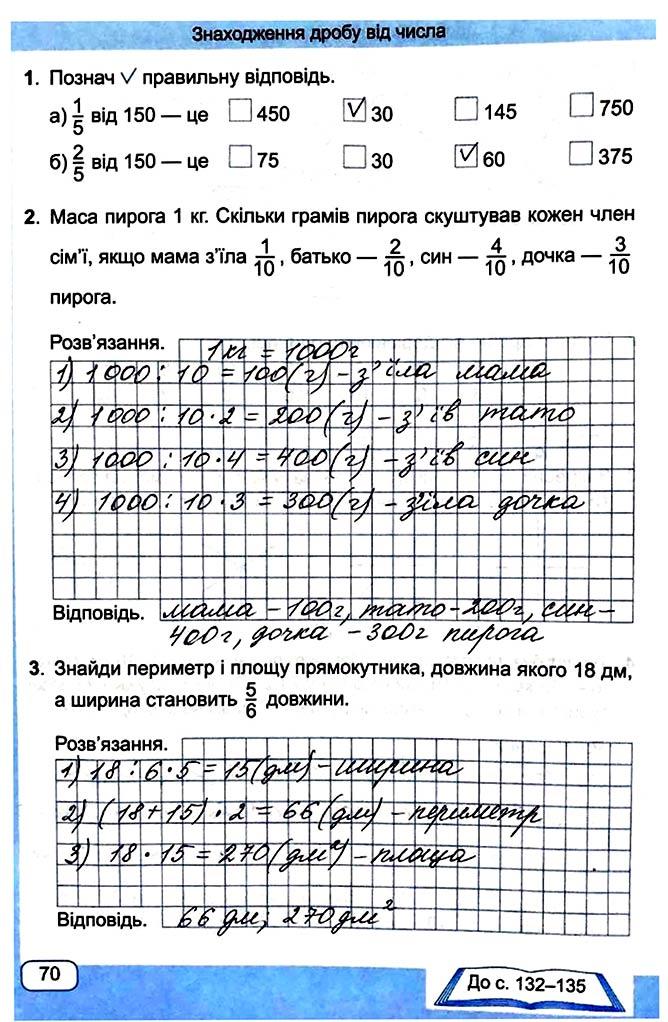 Знаходження дробу від числа
1. Познач √ правильну відповідь.
а) 1/5 від 150 — це 450 √ 30 145 750
б) 2/5 від 150 — це 75 30 √ 60 375
2. Маса пирога 1 кг. Скільки грамів пирога скуштував кожен член
сім'ї, якщо мама з'їла 1/10, батько — 2/10, син — 4/10, дочка — 3/10
пирога.
Розв'язання. 1 кг = 1000г
1) 1000 : 10 = 100(г) – з'їла мама
2) 1000 : 10 · 2 = 200(г) – з'їв тато
3) 1000 : 10 · 4 = 400(г) – з'їв син
4) 1000 : 10 · 3 = 300(г) – з'їла дочка
Відповідь. мама – 100г, тато – 200г, син –
400г, дочка – 300г пирога
3. Знайди периметр і площу прямокутника, довжина якого 18 дм,
а ширина становить 5/6 довжини.
Розв'язання.
1) 18 : 6 · 5 = 15(дм) – ширина
2) (18 + 15) · 2 = 66 (дм) – периметр
3) 18 · 15 = 270 (дм²) – площа
Відповідь. 66 дм; 270 дм²
70
До с. 132–135